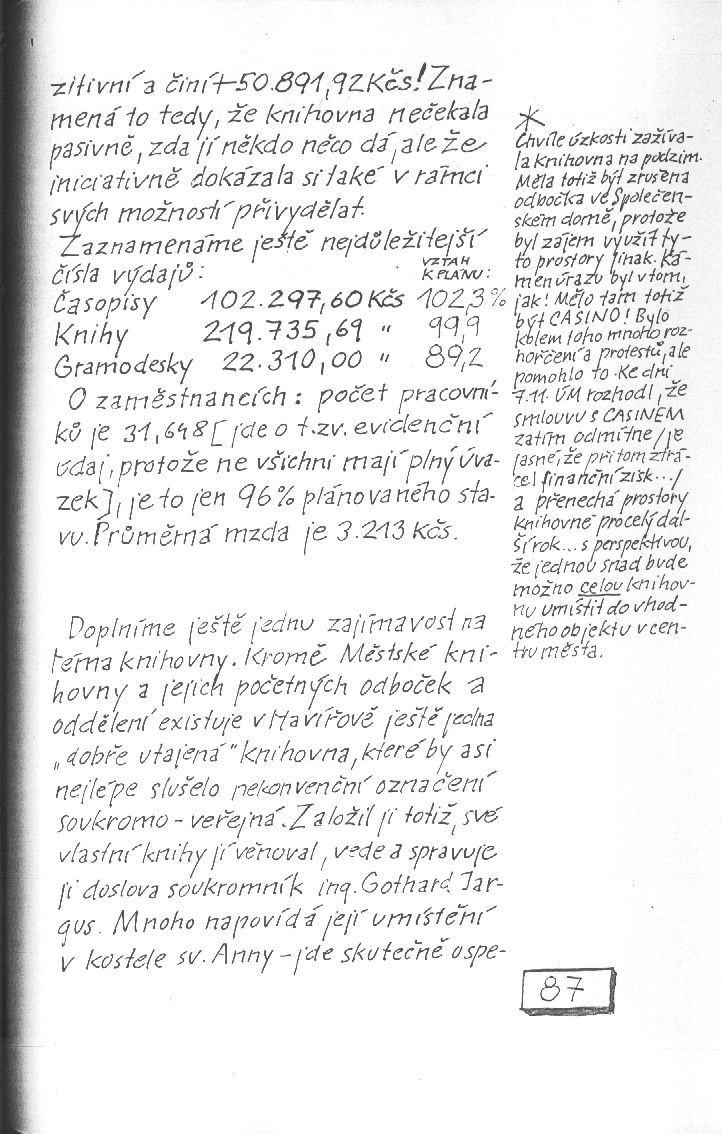 zitivní a činí +50.891,92 Kčs! Zna-
mená to tedy, že knihovna nečekala
pasivně, zda jí někdo něco dá, ale že
iniciativně dokázala si také v rámci
svých možností přivydělat.
Zaznamenáme ještě nejdůležitější
čísla výdajů:
VZTAH
K PLÁNU:
Časopisy 102.297,60 Kčs 102,3%
Knihy 219.735,69 " 99,9
Gramodesky 22.310,00 " 89,2
O zaměstnancích: počet pracovní-
ků je 31,648 [jde o t.zv. evidenční
údaj, protože ne všichni mají plný úva-
zek], je to jen 96% plánovaného sta-
vu. Průměrná mzda je 3.213 Kčs.
Doplníme ještě jednu zajímavost na
téma knihovny. Kromě Městské kni-
hovny a jejich početných odboček a
oddělení existuje v Havířově ještě jedna
„dobře utajená" knihovna, které by asi
nejlépe slušelo nekonvenční označení
soukromo-veřejná. Založil ji totiž, své
vlastní knihy jí věnoval, vede a spravuje
ji doslova soukromník ing. Gothard Jar-
gus. Mnoho napovídá její umístění
v kostele sv. Anny - jde skutečně o spe-
*
Chvíle úzkosti zažíva-
la knihovna na podzim.
Měla totiž být zrušena
odbočka ve Společen-
ském domě, protože
byl zájem využít ty-
to prostory jinak. Ká-
men úrazu byl v tom,
jak! Mělo tam totiž
být CASINO! Bylo
kolem toho mnoho roz-
hořčení a protestů, ale
pomohlo to. Ke dni
7.11. ÚM rozhodl, že
smlouvu s CASINEM
zatím odmítne /je
jasné, že při tom ztrá-
cel finanční zisk.../
a přenechá prostory
knihovně pro celý dal-
ší rok... s perspektivou,
že jednou snad bude
možno celou knihov-
nu umístit do vhod-
ného objektu v cen-
tru města.
87